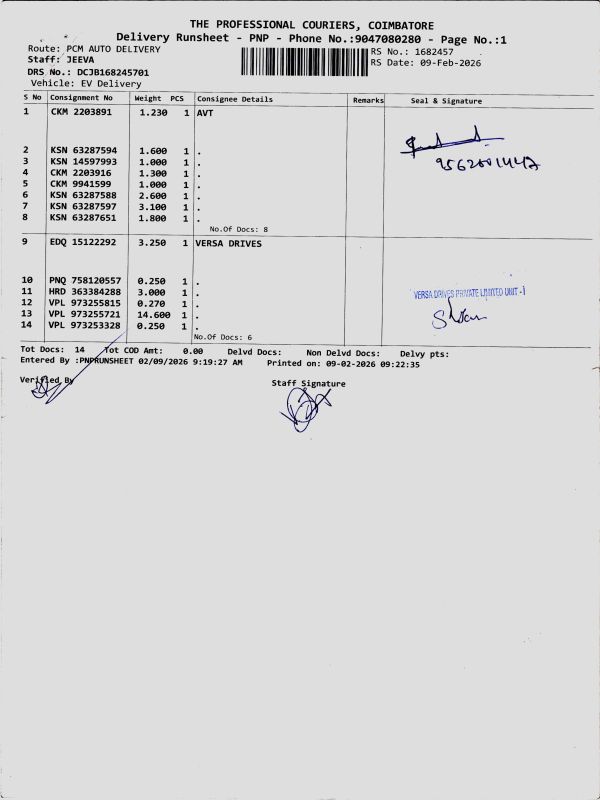 THE PROFESSIONAL COURIERS, COIMBATORE
Delivery Runsheet - PNP - Phone No.:9047080280 - Page No.:1
Route: PCM AUTO DELIVERY RS No.: 1682457
Staff: JEEVA RS Date: 09-Feb-2026
DRS No.: DCJB168245701
Vehicle: EV Delivery
S No Consignment No Weight PCS Consignee Details Remarks Seal & Signature
1 CKM 2203891 1.230 1 AVT
2 KSN 63287594 1.600 1 .
3 KSN 14597993 1.000 1 .
4 CKM 2203916 1.300 1 .
5 CKM 9941599 1.000 1 .
6 KSN 63287588 2.600 1 .
7 KSN 63287597 3.100 1 .
8 KSN 63287651 1.800 1 .
No.Of Docs: 8
9 EDQ 15122292 3.250 1 VERSA DRIVES
10 PNQ 758120557 0.250 1 .
11 HRD 363384288 3.000 1 .
VERSA DRIVES PRIVATE LIMITED UNIT - I
12 VPL 973255815 0.270 1 .
13 VPL 973255721 14.600 1 .
14 VPL 973253328 0.250 1 .
No.Of Docs: 6
Tot Docs: 14 Tot COD Amt: 0.00 Delvd Docs: Non Delvd Docs: Delvy pts:
Entered By :PNPRUNSHEET 02/09/2026 9:19:27 AM Printed on: 09-02-2026 09:22:35
Verified By Staff Signature